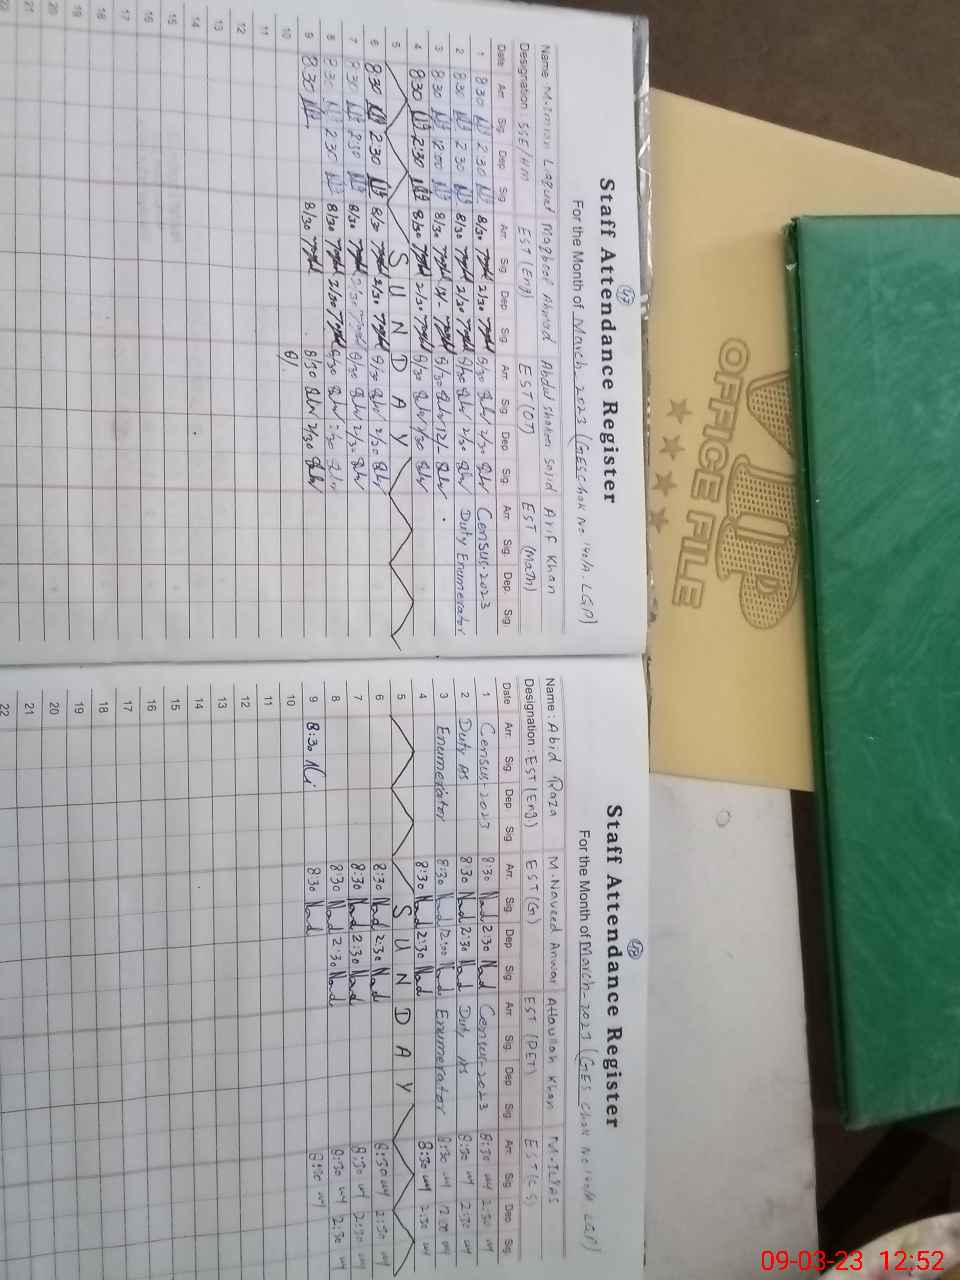 47
Staff Attendance Register
For the Month of March-2023 (GES Chak No 140/A. LGP)
Name: M. Imran Liaquat Maqbool Ahmad Abdul Shakoor Sajid Arif Khan
Designation: SSE/HM EST (Eng) EST (OT) EST (Math)
Date Arr. Sig. Dep. Sig. Arr. Sig. Dep. Sig. Arr. Sig. Dep. Sig. Arr. Sig. Dep. Sig.
1 8:30 2:30 8/30 2/30 8/30 2/30 Census-2023
2 8:30 2:30 8/30 2/30 8/30 2/30 Duty Enumerator
3 8:30 12:00 8/30 12/- 8/30 12/-
4 8:30 2:30 8/30 2/30 8/30 2/30
5 S U N D A Y
6 8:30 2:30 8/30 2/30 8/30 2/30
7 8:30 2:30 8/30 2/30 8/30 2/30
8 8:30 2:30 8/30 2/30 8/30
9 8:30 8/30 8/30 2/30
10 8/
11
12
13
14
15
16
17
18
19
20
21
22
48
Staff Attendance Register
For the Month of March-2023 (GES Chak No 140/A LGP)
Name: Abid Raza M. Naveed Anwar Attaullah Khan M. ILYAS
Designation: EST (Eng) EST (G) EST (PET) EST (CS)
Date Arr. Sig. Dep. Sig. Arr. Sig. Dep. Sig. Arr. Sig. Dep. Sig. Arr. Sig. Dep. Sig.
1 Census-2023 8:30 Navd 2:30 Navd Census-2023 8:30 2:30
2 Duty As 8:30 Navd 2:30 Navd Duty As 8:30 2:30
3 Enumerator 8:30 Navd 12:30 Navd Enumerator 8:30 12:00
4 8:30 Navd 2:30 Navd 8:30 2:30
5 S U N D A Y
6 8:30 Navd 2:30 Navd 8:30 2:30
7 8:30 Navd 2:30 Navd 8:30 2:30
8 8:30 Navd 2:30 Navd 8:30 2:30
9 8:30 8:30 Navd 8:30
10
11
12
13
14
15
16
17
18
19
20
21
22
VIP
OFFICE FILE
09-03-23 12:52